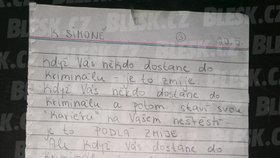 K SIMONE 3 22.7.
KDYŽ VÁS NĚKDO DOSTANE DO
KRIMINÁLU - JE TO ZMIJE
KDYŽ VÁS NĚKDO DOSTANE DO
KRIMINÁLU A POTOM STAVÍ SVOU
"KARIÉRU" NA VAŠEM NEŠTĚSTÍ -
JE TO PODLÁ ZMIJE
"ALE KDYŽ VÁS DOSTANE DO